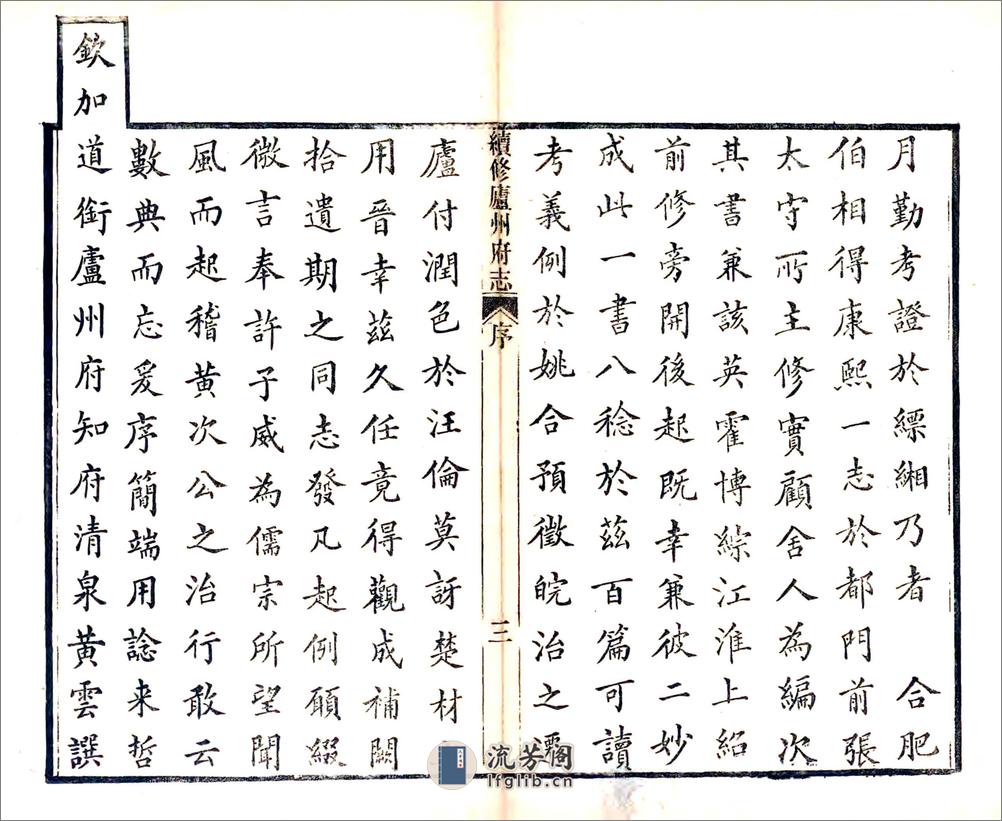 月勤考證於縹緗乃者 合肥
伯相得康熙一志於都門前張
太守所主修實顧舍人為編次
其書兼該英霍博綜江淮上紹
前修旁開後起既幸兼彼二妙
成此一書八稔於茲百篇可讀
考義例於姚合預徵皖治之
續修廬州府志 序 三
廬付潤色於汪倫莫訝楚材
用晉幸茲久任竟得觀成補闕
拾遺期之同志發凡起例願綴
微言奉許子威為儒宗所望聞
風而起稽黃次公之治行敢云
數典而忘爰序簡端用諗来哲
欽加道銜廬州府知府清泉黃雲譔
流芳阁
lfglib.cn